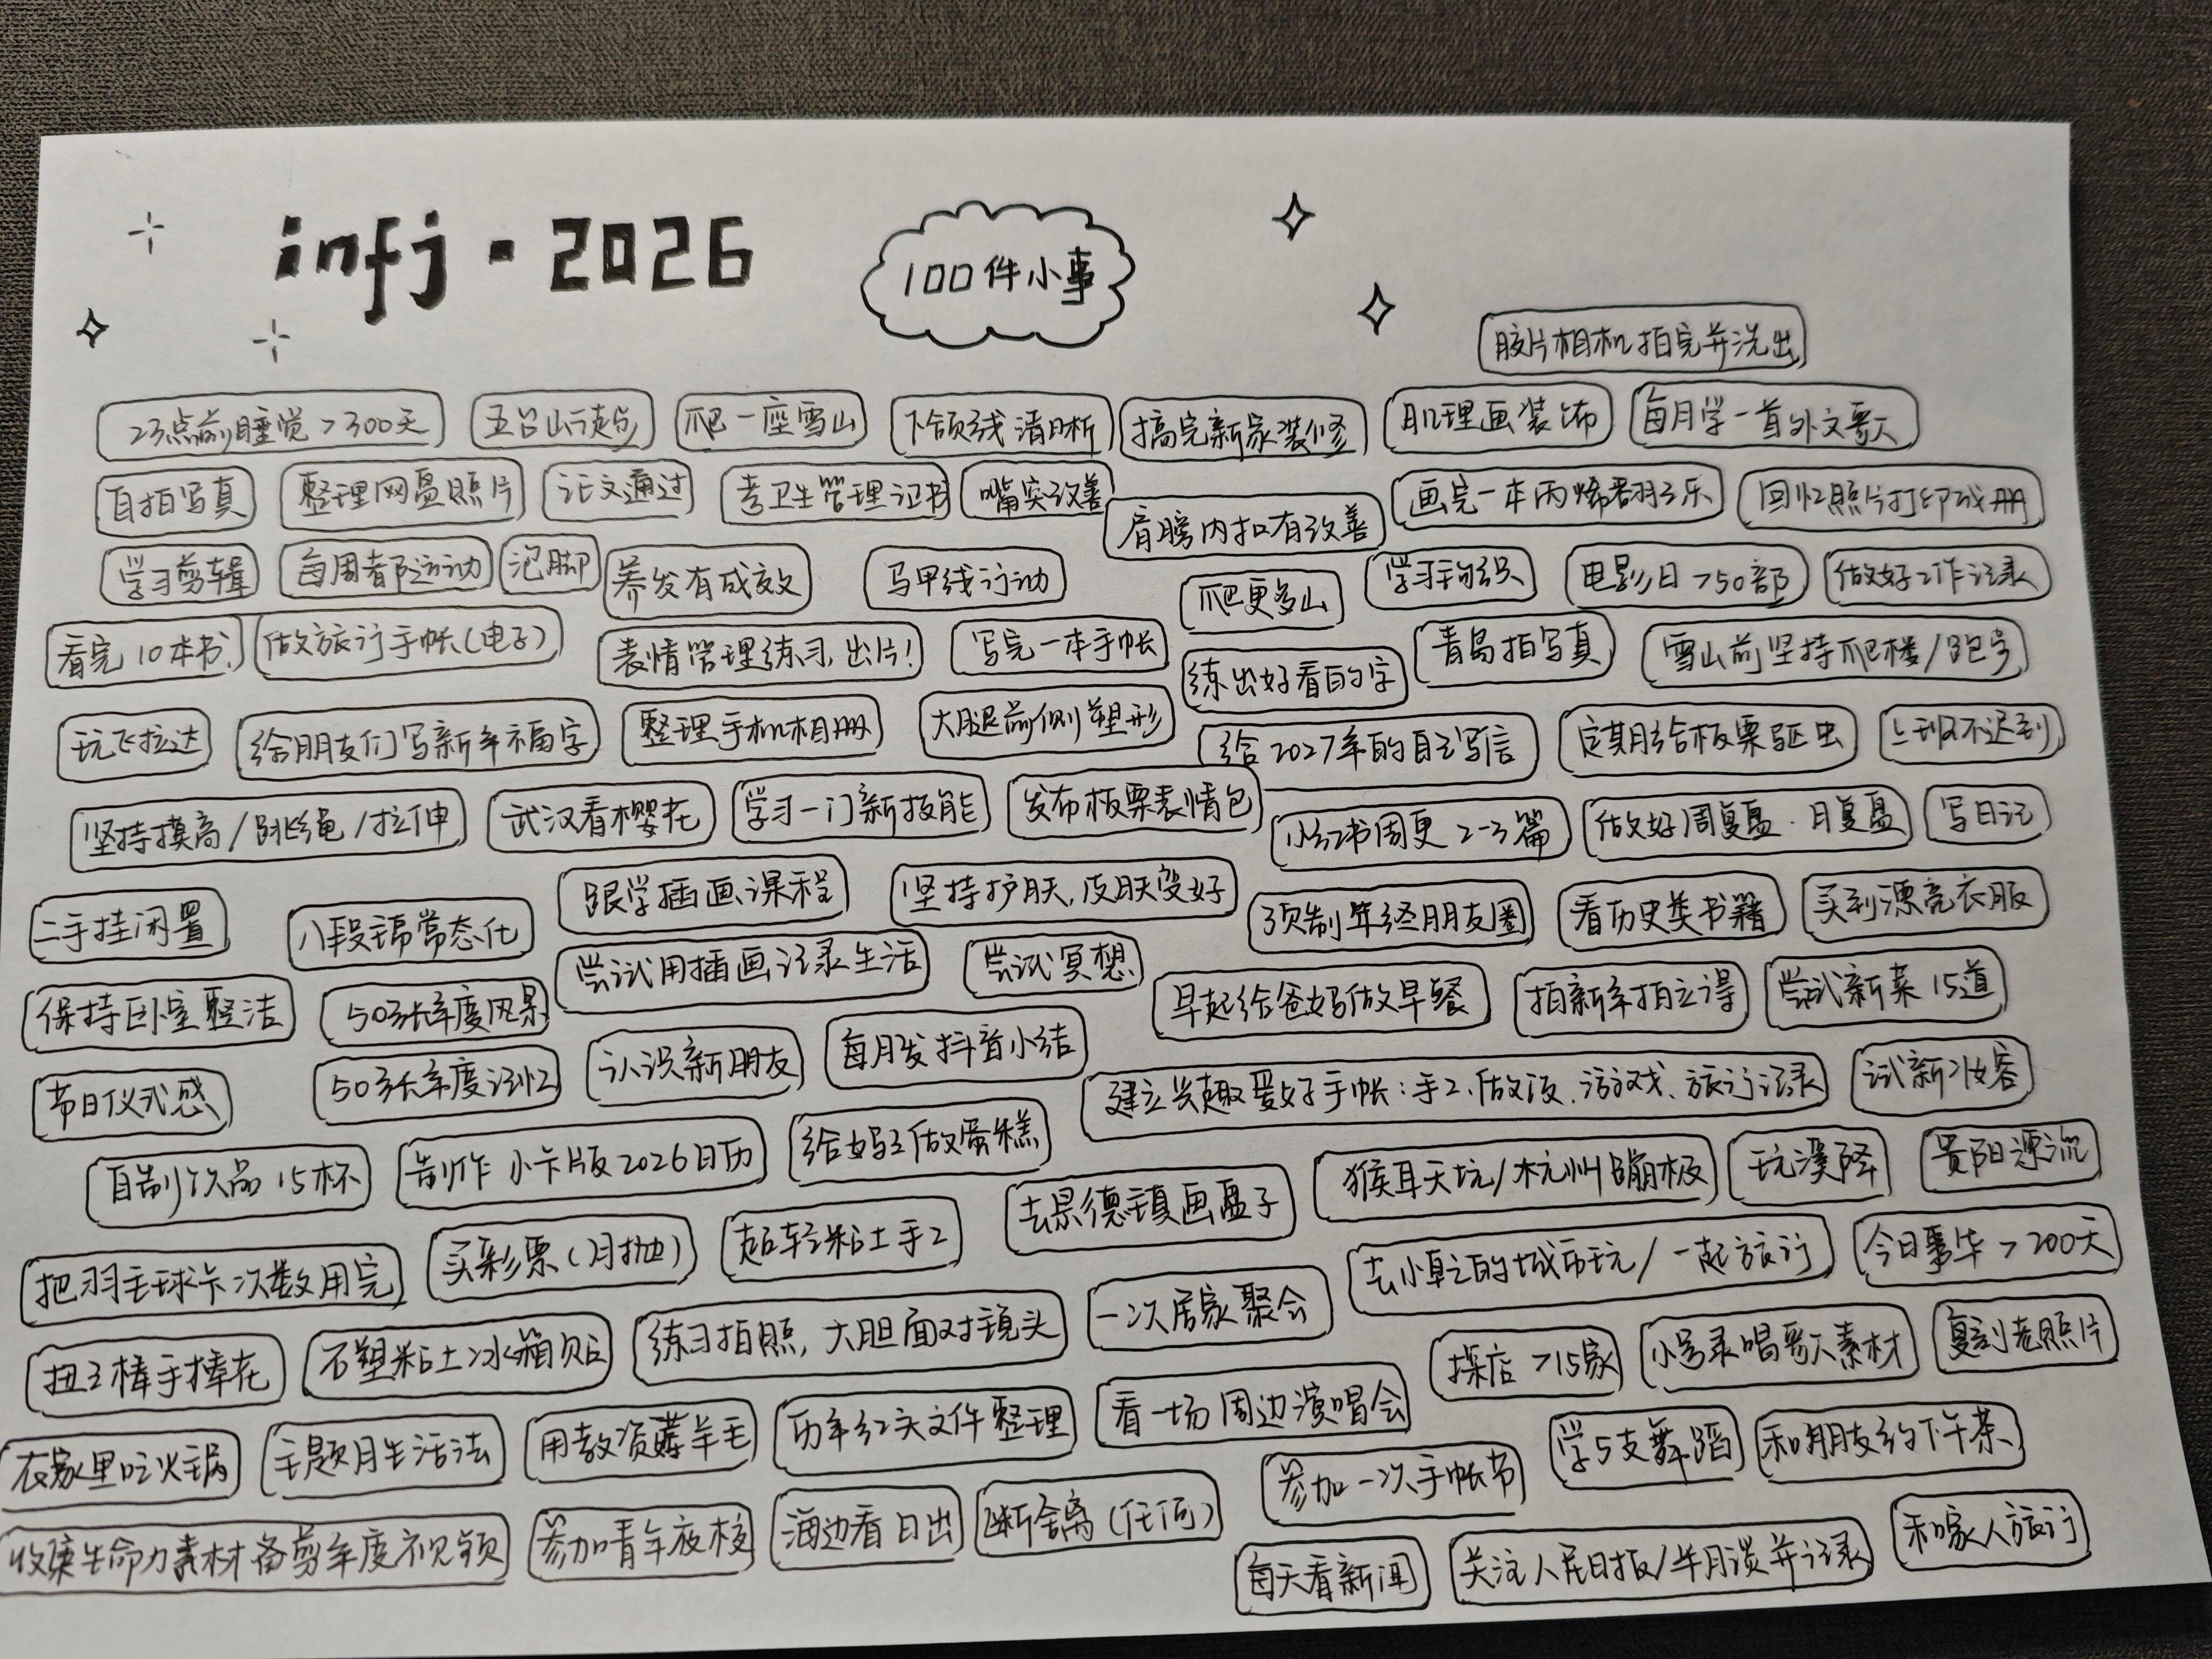 infj · 2026
100件小事
胶片相机拍完并洗出
23点前睡觉>300天
五台山徒步
爬一座雪山
下颌线清晰
搞完新家装修
肌理画装饰
每月学一首外文歌
自拍写真
整理网盘照片
论文通过
考卫生管理证书
嘴突改善
肩膀内扣有改善
画完一本丙烯翻翻乐
回忆照片打印成册
学习剪辑
每周都运动
泡脚
养发有成效
马甲线行动
爬更多山
学习钩织
电影日>50部
做好工作记录
看完10本书
做旅行手帐(电子)
表情管理练习,出片!
写完一本手帐
练出好看的字
青岛拍写真
雪山前坚持爬楼/跑步
玩飞拉达
给朋友们写新年福字
整理手机相册
大腿前侧塑形
给2027年的自己写信
定期给板栗驱虫
上班不迟到
坚持摸高/跳绳/拉伸
武汉看樱花
学习一门新技能
发布板栗表情包
小红书周更2-3篇
做好周复盘·月复盘
写日记
二手挂闲置
八段锦常态化
跟学插画课程
坚持护肤,皮肤变好
预制年终朋友圈
看历史类书籍
买到漂亮衣服
保持卧室整洁
50张年度风景
尝试用插画记录生活
尝试冥想
早起给爸妈做早餐
拍新年拍立得
尝试新菜15道
节日仪式感
50张年度记忆
认识新朋友
每月发抖音小结
建立兴趣爱好手帐:手工、做饭、游戏、旅行记录
试新妆容
自制饮品15杯
制作小卡版2026日历
给妈妈做蛋糕
去景德镇画盘子
猴耳天坑/杭州蹦极
玩溪降
贵阳漂流
把羽毛球卡次数用完
买彩票(月抛)
超轻粘土手工
去小草的城市玩/一起旅行
今日事毕>200天
扭扭棒手捧花
石塑粘土冰箱贴
练习拍照,大胆面对镜头
一次居家聚会
探店>15家
小号录唱歌素材
复刻老照片
在家里吃火锅
主题月生活法
用教资薅羊毛
历年红头文件整理
看一场周边演唱会
参加一次手帐节
学5支舞蹈
和朋友约下午茶
收集生命力素材备剪年度视频
参加青年夜校
海边看日出
断舍离(任何)
每天看新闻
关注人民日报/半月谈并记录
和家人旅行